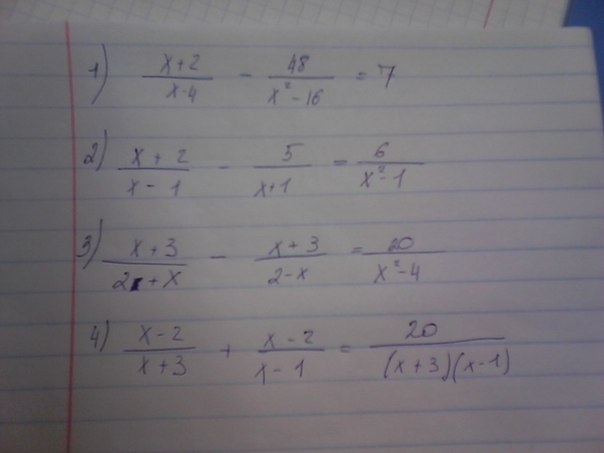 1) (x+2)/(x-4) - 48/(x²-16) = 7
2) (x+2)/(x-1) - 5/(x+1) = 6/(x²-1)
3) (x+3)/(2+x) - (x+3)/(2-x) = 20/(x²-4)
4) (x-2)/(x+3) + (x-2)/(x-1) = 20/((x+3)(x-1))